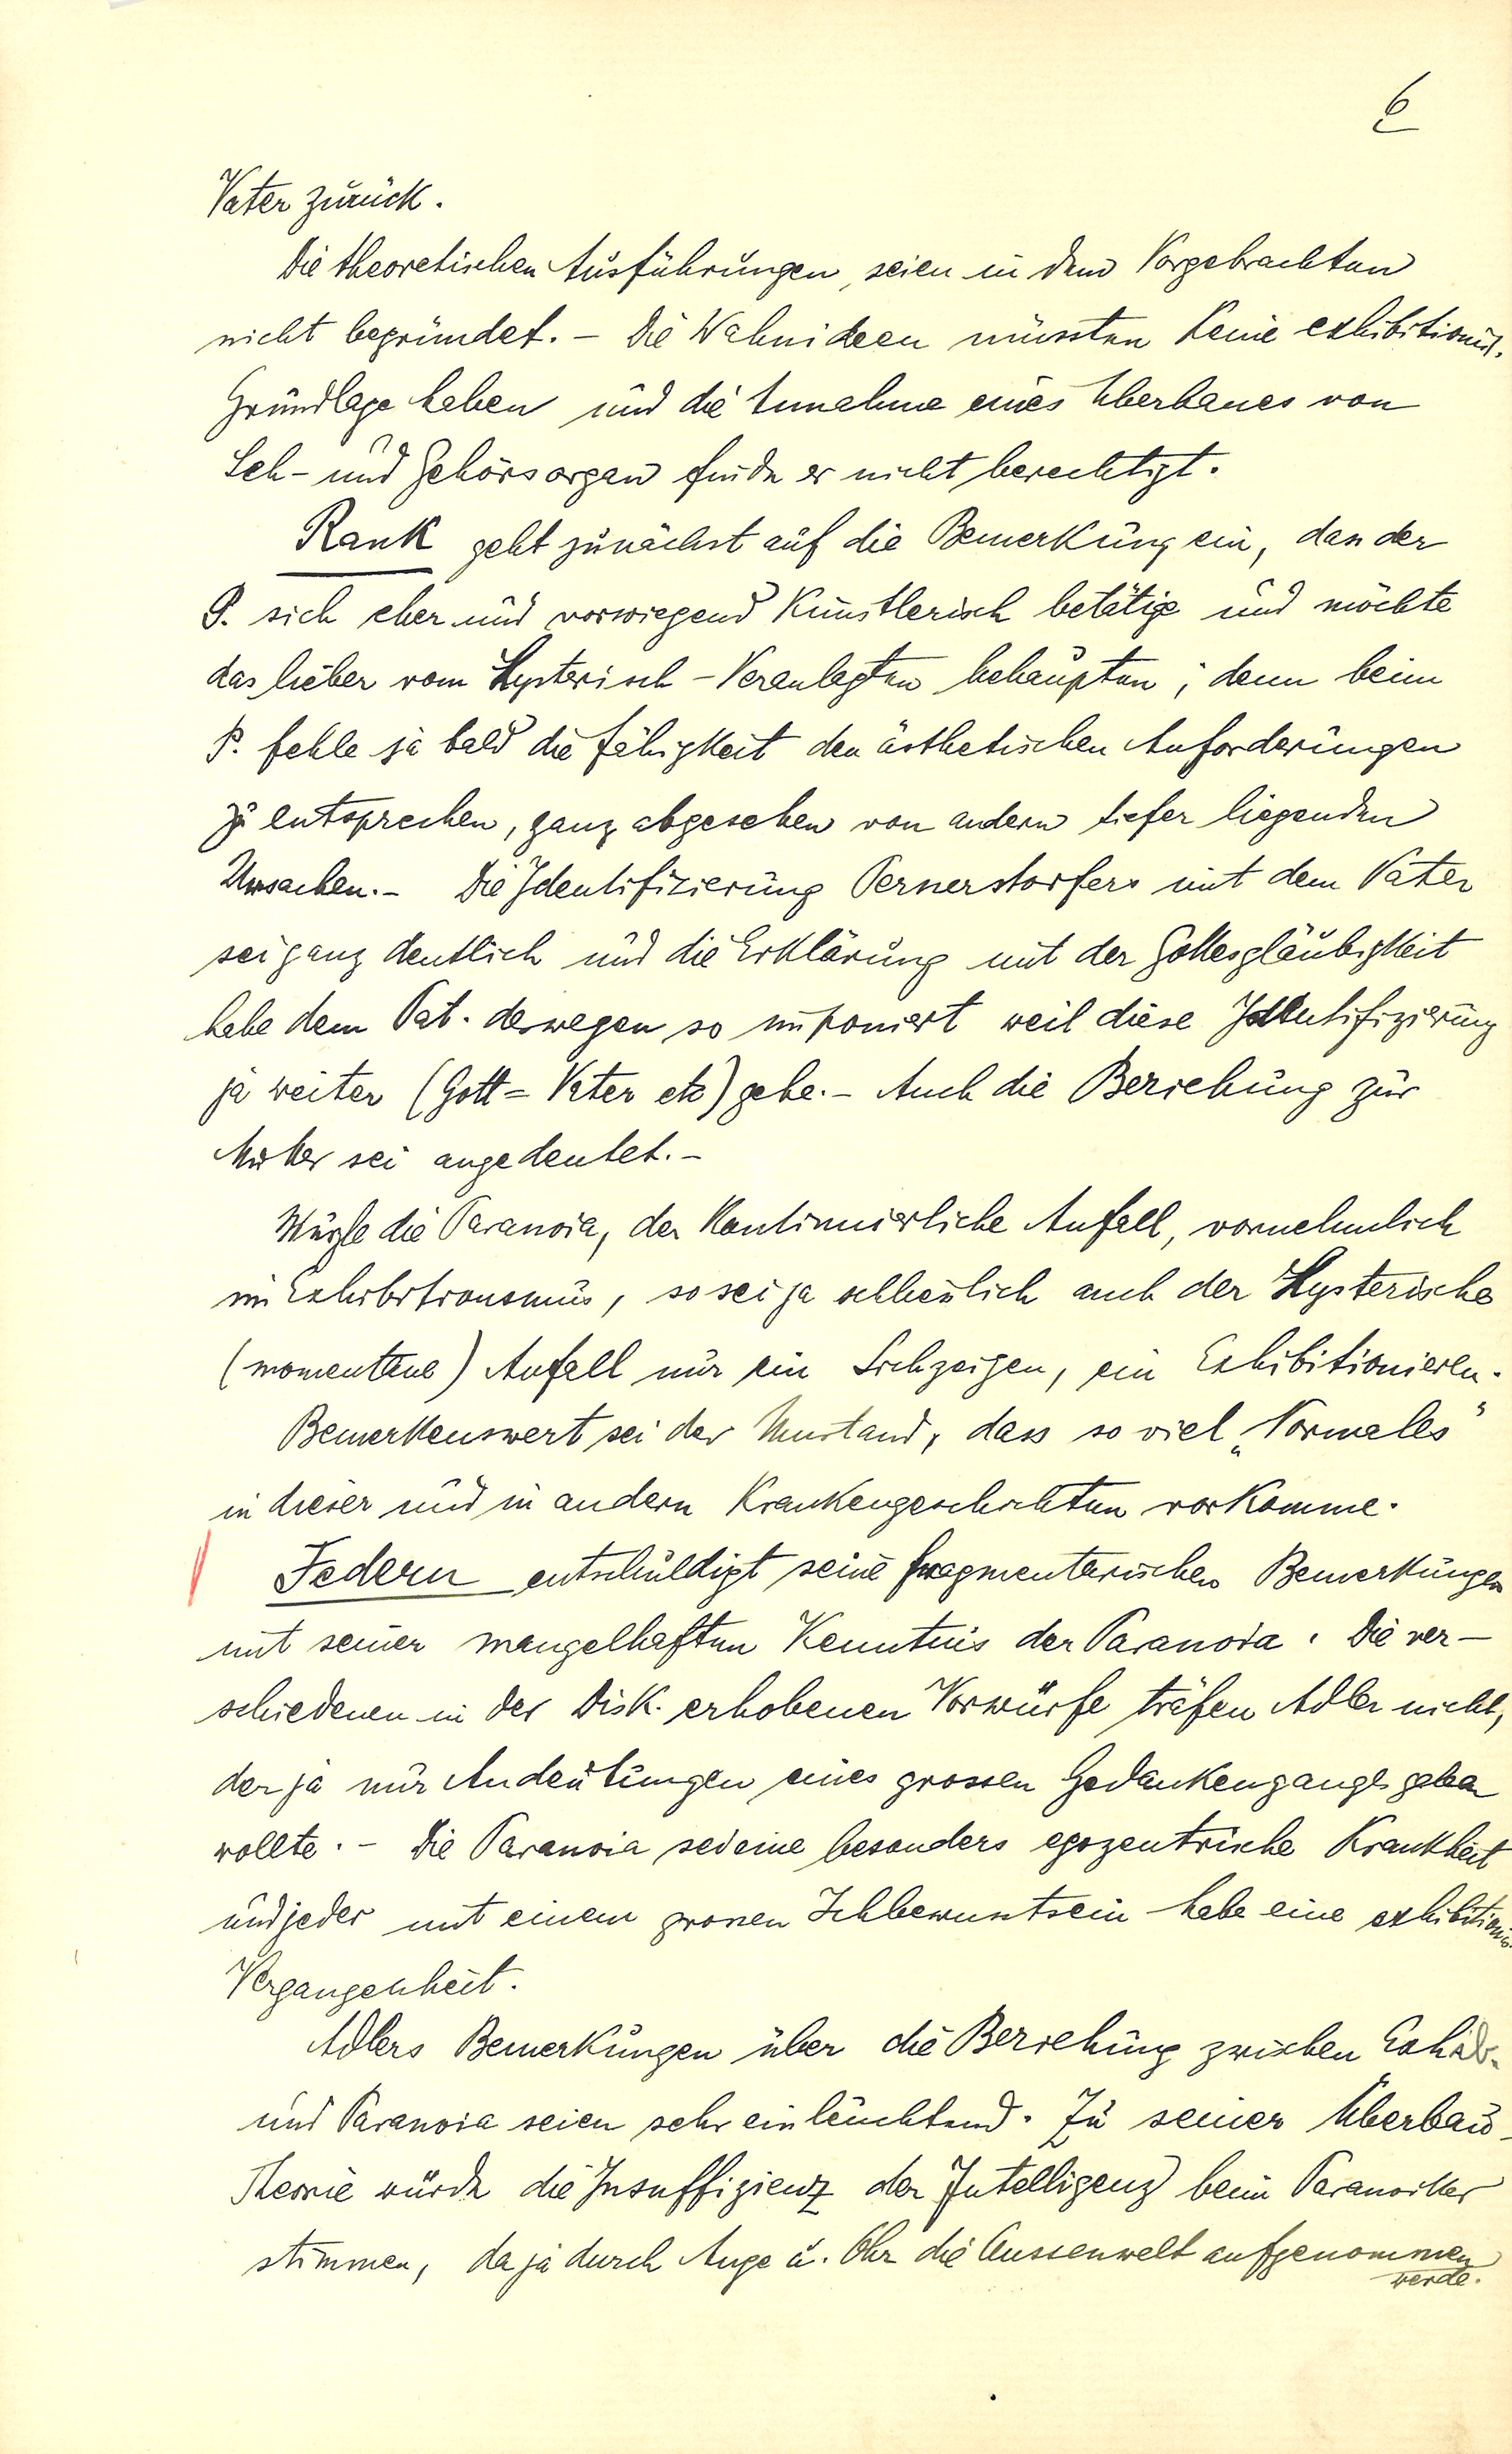 6
Vater zurück.
Die theoretischen Ausführungen, seien in dem Vorgebrachten
nicht begründet. - Die Wahnideen müssten keine exhibitionist.
Grundlage haben und die Annahme eines Überbaues von
Seh- und Gehörsorgan finde er nicht berechtigt.
Rank geht zunächst auf die Bemerkung ein, dass der
P. sich eher und vorwiegend künstlerisch betätige und möchte
das lieber vom Hysterisch-Veranlagten behaupten; denn beim
P. fehle ja bald die Fähigkeit den ästhetischen Anforderungen
zu entsprechen, ganz abgesehen von andern tiefer liegenden
Ursachen. - Die Identifizierung Pernerstorfers mit dem Vater
sei ganz deutlich und die Erklärung mit der Gottesgläubigkeit
habe dem Pat. deswegen so imponiert weil diese Identifizierung
ja weiter (Gott = Vater etc) gehe. - Auch die Beziehung zur
Mutter sei angedeutet. -
Wurzle die Paranoia, der kontinuierliche Anfall, vornehmlich
im Exhibitionsmus, so sei ja schliesslich auch der Hysterische
(momentane) Anfall nur ein Sichzeigen, ein Exhibitionieren.
Bemerkenswert sei der Umstand, dass so viel „Normales"
in dieser und in andern Krankengeschichten vorkomme.
Federn entschuldigt seine fragmentarischen Bemerkungen
mit seiner mangelhaften Kenntnis der Paranoia. Die ver-
schiedenen in der Disk. erhobenen Vorwürfe träfen Adler nicht,
der ja nur Andeutungen eines grossen Gedankenganges geben
wollte. - Die Paranoia sei eine besonders egozentrische Krankheit
und jeder mit einem grossen Ichbewusstsein habe eine exhibitionis.
Vergangenheit.
Adlers Bemerkungen über die Beziehung zwischen Exhib.
und Paranoia seien sehr einleuchtend. Zu seiner Überbau-
Theorie würde die Insuffizienz der Intelligenz beim Paranoiker
stimmen, da ja durch Auge u. Ohr die Aussenwelt aufgenommen
werde.